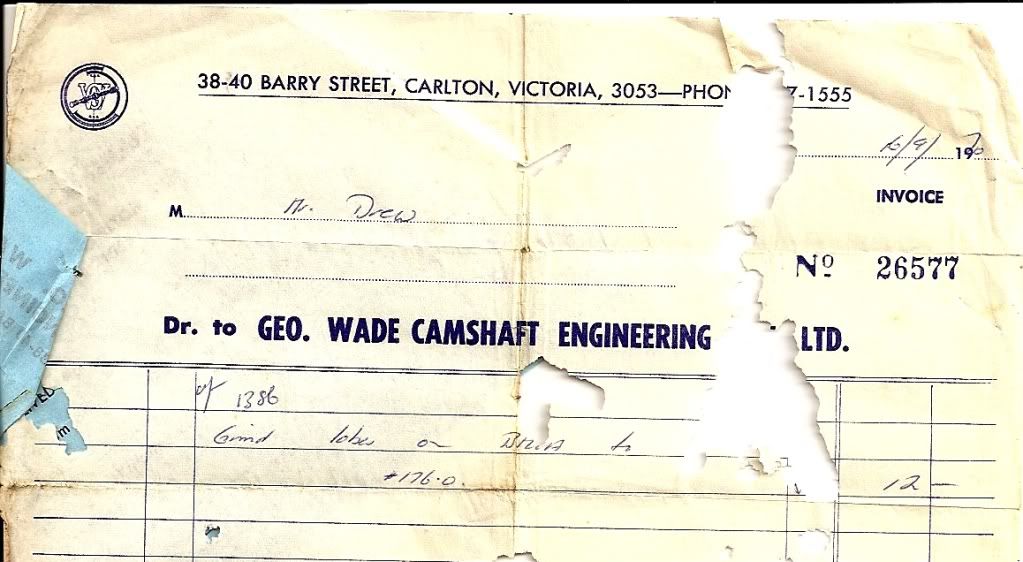 38-40 BARRY STREET, CARLTON, VICTORIA, 3053—PHON 7-1555
16/9/ 1970
INVOICE
M Mr. Drew
Nº 26577
Dr. to GEO. WADE CAMSHAFT ENGINEERING LTD.
1386
Grind lobes on to
#176.0.
12 —